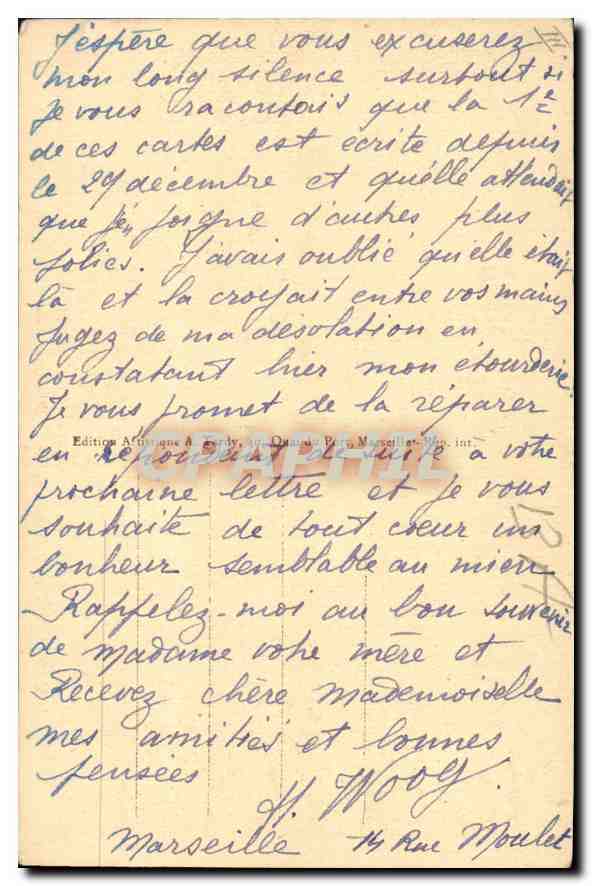 III
J'espère que vous excuserez
mon long silence surtout si
je vous racontais que la 1re
de ces cartes est écrite depuis
le 29 décembre et qu'elle attendait
que j'en joigne d'autres plus
jolies. J'avais oublié qu'elle était
là et la croyait entre vos mains
Jugez de ma désolation en
constatant hier mon étourderie.
Je vous promet de la réparer
Edition Artistique A. Tardy, Quai du Port, Marseille - Rep. int.
en répondant de suite à votre
CPAPHIL
prochaine lettre et je vous
souhaite de tout cœur un
bonheur semblable au mien
Rappelez-moi au bon souvenir
de Madame votre mère et
Recevez chère Mademoiselle
mes amitiés et bonnes
pensées
H. Woog.
Marseille 14 Rue Moulet